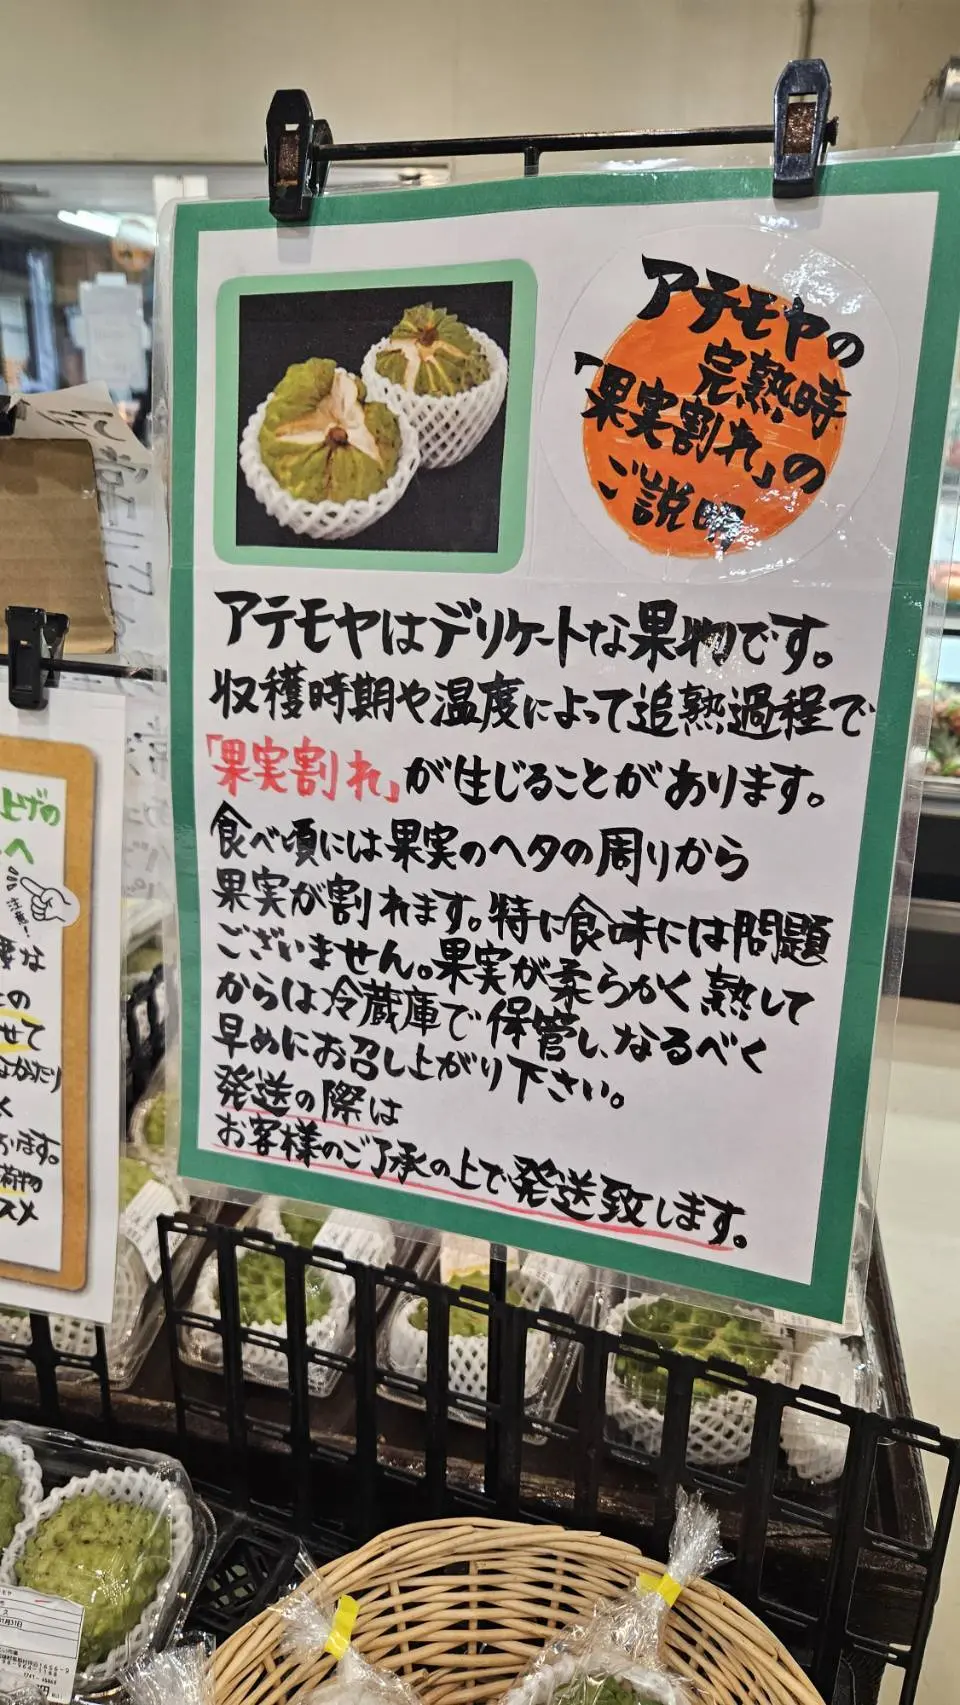 アテモヤの
完熟時
「果実割れ」の
ご説明
アテモヤはデリケートな果物です。
収穫時期や温度によって追熟過程で
「果実割れ」が生じることがあります。
食べ頃には果実のヘタの周りから
果実が割れます。特に食味には問題
ございません。果実が柔らかく熟して
からは冷蔵庫で保管し、なるべく
早めにお召し上がり下さい。
発送の際は
お客様のご了承の上で発送致します。
上げの
へ
注意!
な
の
せて
ながり
く
おります。
荷物
スメ